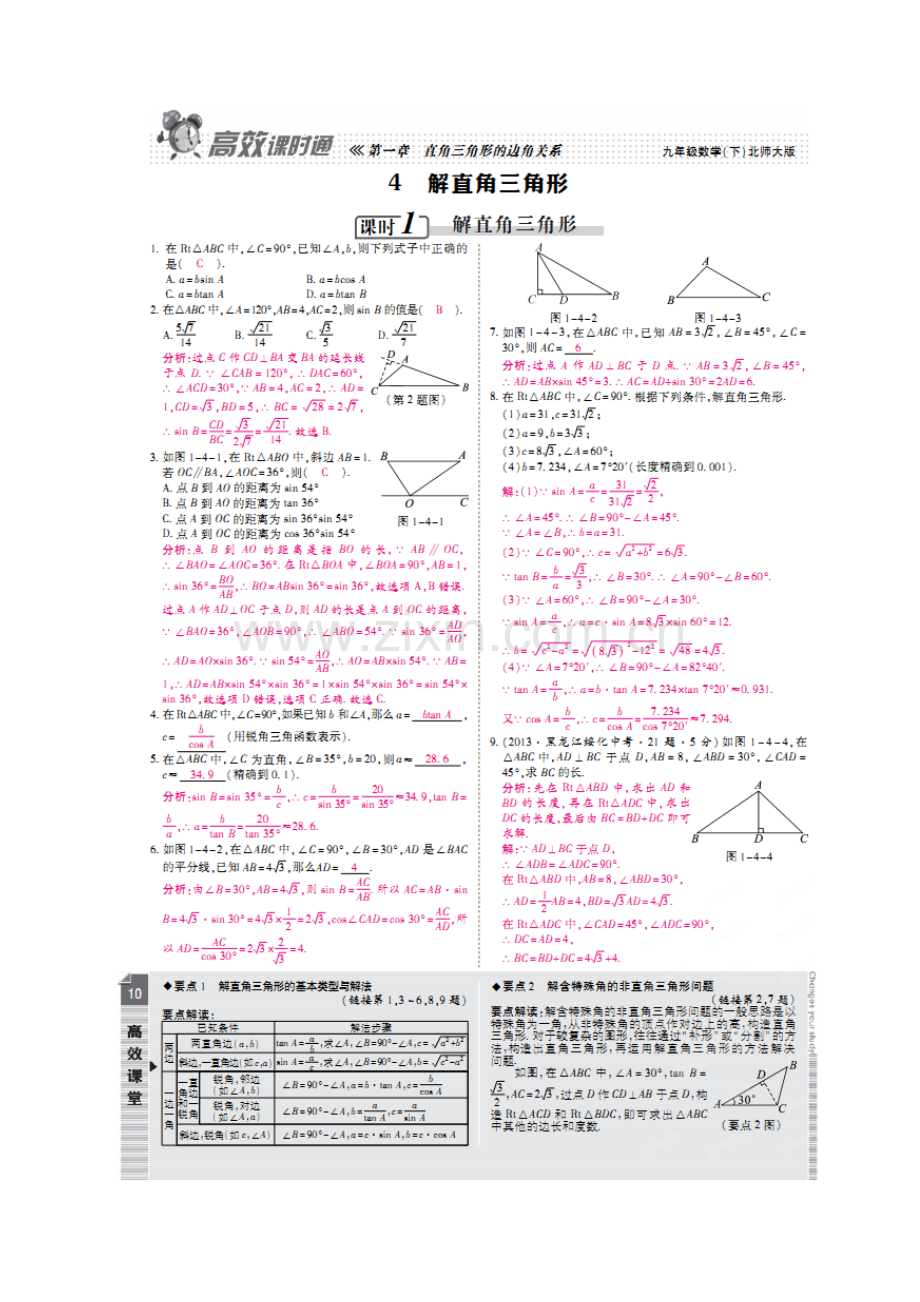 高效课时通 ⋘ 第一章 直角三角形的边角关系 九年级数学(下)北师大版
4 解直角三角形
课时1 解直角三角形
1. 在 Rt△ABC 中,∠C=90°,已知∠A,b,则下列式子中正确的
是( C ).
A. a=bsin A B. a=bcos A
C. a=btan A D. a=btan B
2. 在△ABC 中,∠A=120°,AB=4,AC=2,则 sin B 的值是( B ).
A. 5√7/14 B. √21/14 C. √3/5 D. √21/7
分析:过点 C 作 CD⊥BA 交 BA 的延长线
于点 D.∵ ∠CAB=120°,∴ ∠DAC=60°,
∴ ∠ACD=30°,∵ AB=4,AC=2,∴ AD=
1,CD=√3,BD=5,∴ BC=√28=2√7,
∴ sin B=CD/BC=√3/2√7=√21/14. 故选 B.
D A C B
(第 2 题图)
3. 如图 1-4-1,在 Rt△ABO 中,斜边 AB=1.
若 OC∥BA,∠AOC=36°,则( C ).
A. 点 B 到 AO 的距离为 sin 54°
B. 点 B 到 AO 的距离为 tan 36°
C. 点 A 到 OC 的距离为 sin 36°sin 54°
D. 点 A 到 OC 的距离为 cos 36°sin 54°
B A O C
图 1-4-1
分析:点 B 到 AO 的距离是指 BO 的长,∵ AB∥OC,
∴ ∠BAO=∠AOC=36°. 在 Rt△BOA 中,∠BOA=90°,AB=1,
∴ sin 36°=BO/AB,∴ BO=ABsin 36°=sin 36°,故选项 A,B 错误.
过点 A 作 AD⊥OC 于点 D,则 AD 的长是点 A 到 OC 的距离,
∵ ∠BAO=36°,∠AOB=90°,∴ ∠ABO=54°.∵ sin 36°=AD/AO,
∴ AD=AO×sin 36°.∵ sin 54°=AO/AB,∴ AO=AB×sin 54°.∵ AB=
1,∴ AD=AB×sin 54°×sin 36°=1×sin 54°×sin 36°=sin 54°×
sin 36°,故选项 D 错误,选项 C 正确. 故选 C.
4. 在 Rt△ABC 中,∠C=90°,如果已知 b 和∠A,那么 a= btan A ,
c= b/cos A (用锐角三角函数表示).
5. 在△ABC 中,∠C 为直角,∠B=35°,b=20,则 a≈ 28.6 ,
c≈ 34.9 (精确到 0.1).
分析:sin B=sin 35°=b/c,∴ c=b/sin 35°=20/sin 35°≈34.9,tan B=
b/a,∴ a=b/tan B=20/tan 35°≈28.6.
6. 如图 1-4-2,在△ABC 中,∠C=90°,∠B=30°,AD 是∠BAC
的平分线,已知 AB=4√3,那么AD= 4 .
分析:由∠B=30°,AB=4√3,则 sin B=AC/AB. 所以 AC=AB·sin
B=4√3·sin 30°=4√3×1/2=2√3,cos∠CAD=cos 30°=AC/AD,所
以 AD=AC/cos 30°=2√3×2/√3=4.
A C D B
图 1-4-2
A B C
图 1-4-3
7. 如图 1-4-3,在△ABC 中,已知 AB=3√2,∠B=45°,∠C=
30°,则 AC= 6 .
分析:过点 A 作 AD⊥BC 于 D 点.∵ AB=3√2,∠B=45°,
∴ AD=AB×sin 45°=3.∴ AC=AD÷sin 30°=2AD=6.
8. 在 Rt△ABC 中,∠C=90°. 根据下列条件,解直角三角形.
(1)a=31,c=31√2;
(2)a=9,b=3√3;
(3)c=8√3,∠A=60°;
(4)b=7.234,∠A=7°20′(长度精确到 0.001).
解:(1)∵ sin A=a/c=31/31√2=√2/2,
∴ ∠A=45°.∴ ∠B=90°-∠A=45°.
∵ ∠A=∠B,∴ b=a=31.
(2)∵ ∠C=90°,∴ c=√(a²+b²)=6√3.
∵ tan B=b/a=√3/3,∴ ∠B=30°.∴ ∠A=90°-∠B=60°.
(3)∵ ∠A=60°,∴ ∠B=90°-∠A=30°.
∵ sin A=a/c,∴ a=c·sin A=8√3×sin 60°=12.
∴ b=√(c²-a²)=√((8√3)²-12²)=√48=4√3.
(4)∵ ∠A=7°20′,∴ ∠B=90°-∠A=82°40′.
∵ tan A=a/b,∴ a=b·tan A=7.234×tan 7°20′≈0.931.
又∵ cos A=b/c,∴ c=b/cos A=7.234/cos 7°20′≈7.294.
9. (2013·黑龙江绥化中考·21 题·5 分)如图 1-4-4,在
△ABC 中,AD⊥BC 于点 D,AB=8,∠ABD=30°,∠CAD=
45°,求 BC 的长.
分析:先在 Rt△ABD 中,求出 AD 和
BD 的长度,再在 Rt△ADC 中,求出
DC 的长度,最后由 BC=BD+DC 即可
求解.
A B D C
图 1-4-4
解:∵ AD⊥BC 于点 D,
∴ ∠ADB=∠ADC=90°.
在 Rt△ABD 中,AB=8,∠ABD=30°,
∴ AD=1/2AB=4,BD=√3AD=4√3.
在 Rt△ADC 中,∠CAD=45°,∠ADC=90°,
∴ DC=AD=4,
∴ BC=BD+DC=4√3+4.
www.zixin.com.cn
10
高效课堂
◆要点 1 解直角三角形的基本类型与解法
(链接第 1,3~6,8,9 题)
要点解读:
已知条件 解法步骤
两边 两直角边(a,b) tan A=a/b,求∠A,∠B=90°-∠A,c=√(a²+b²)
斜边,一直角边(如c,a) sin A=a/c,求∠A,∠B=90°-∠A,b=√(c²-a²)
一边一角 一直角边和一锐角 锐角,邻边(如∠A,b) ∠B=90°-∠A,a=b·tan A,c=b/cos A
锐角,对边(如∠A,a) ∠B=90°-∠A,b=a/tan A,c=a/sin A
斜边,锐角(如 c,∠A) ∠B=90°-∠A,a=c·sin A,b=c·cos A
◆要点 2 解含特殊角的非直角三角形问题
(链接第 2,7 题)
要点解读:解含特殊角的非直角三角形问题的一般思路是以
特殊角为一角,从非特殊角的顶点作对边上的高,构造直角
三角形. 对于较复杂的图形,往往通过“补形”或“分割”的方
法,构造出直角三角形,再运用解直角三角形的方法解决
问题.
如图,在△ABC 中,∠A=30°,tan B=
√3/2,AC=2√3,过点 D 作 CD⊥AB 于点 D,构
造 Rt△ACD 和 Rt△BDC,即可求出△ABC
中其他的边长和度数.
B D A 30° C
(要点 2 图)
Changes your study!